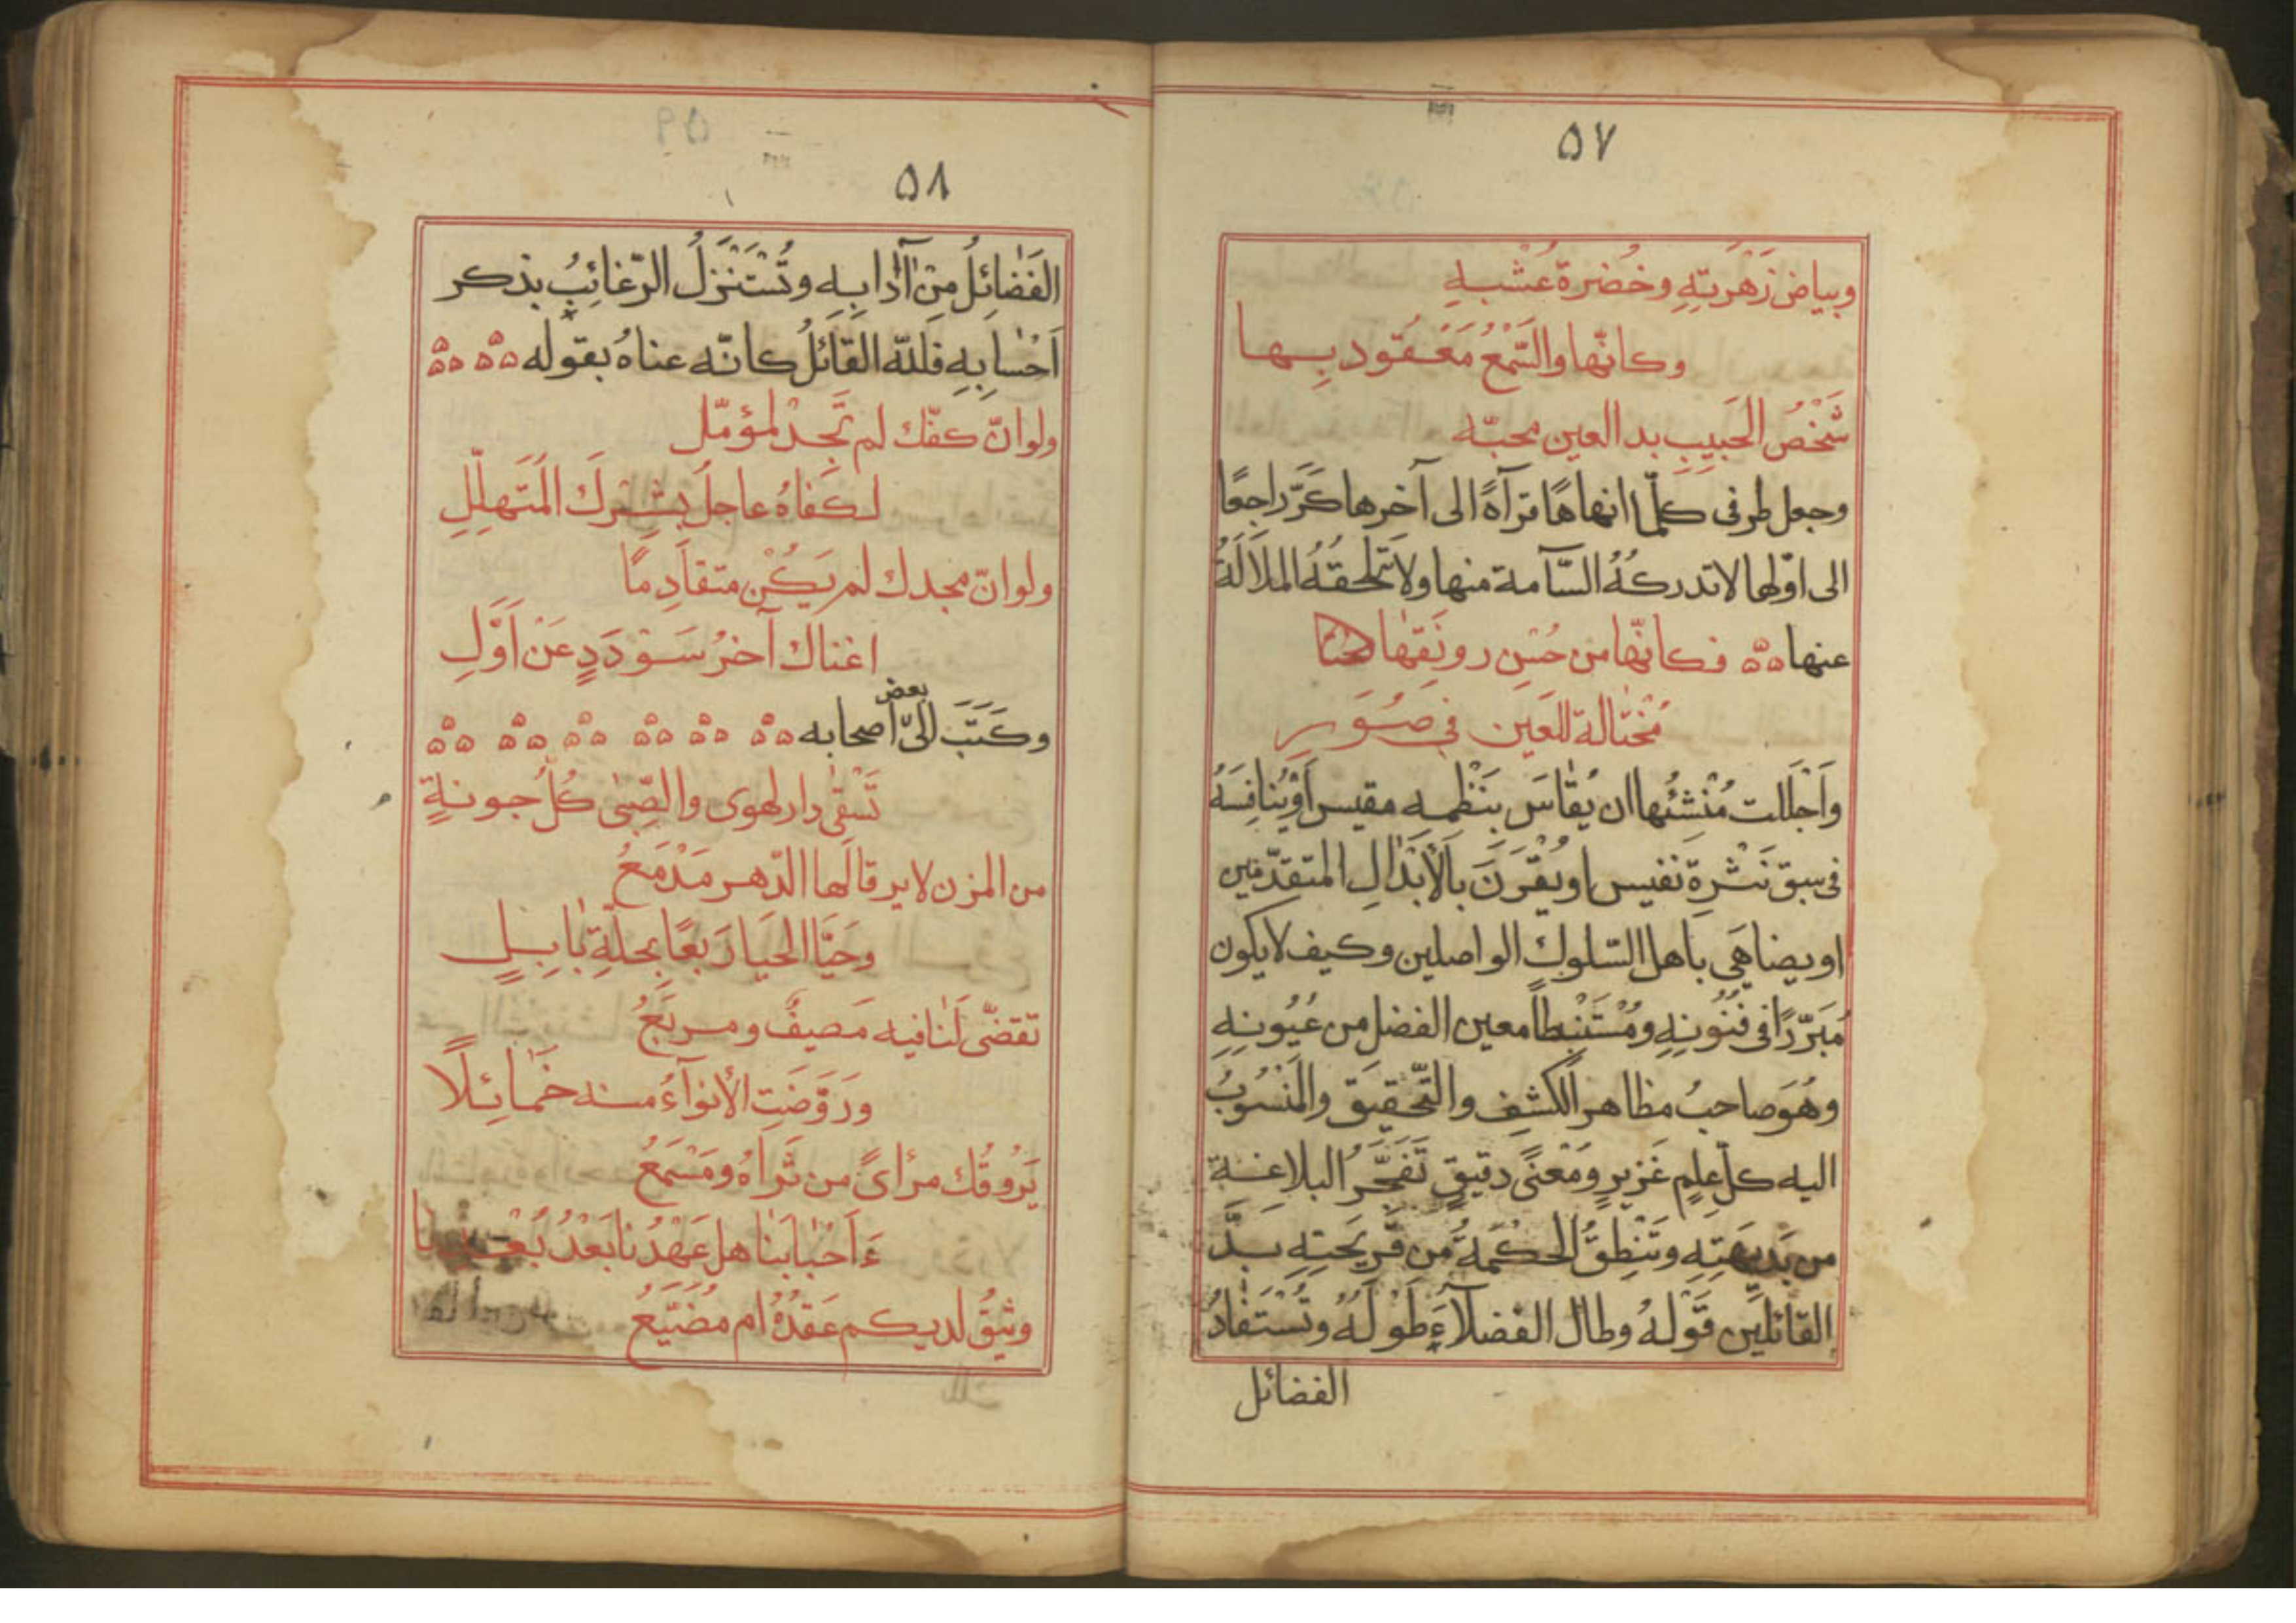 ٥٧
وبياض زَهْرَتِهِ وخُضرة عُشْبِهِ
وكانّها والسَّمْعُ مَعْقُود بِـها
شَخْصُ الحَبِيبِ بدا لعين محبّه
وجعل طرفى كلّما انهاهَا قرآءةً الى آخرها كَرَّ راجِعًا
الى اوّلها لا تدركُهُ السَّآمة منها ولا تَلحقهُ الملَالَةُ
عنها ۵۵ فكانّها من حُسْنِ رونَقِهَا
مُختٰالة للعَين فى صُوَرِ
وَاَجْلَلت مُنْشِئَها ان يُقٰاسَ بنَظْمِه مقيس اَوْيُنافِسَهُ
فى سبق نَثْرِهِ نَفيس او يُقْرَنَ بالأَبْدٰالِ المتقدّمين
او يضاهَى بأهل السّلوك الواصلين وكيف لا يكون
مُبَرّزًا فى فُنُونِهِ ومُسْتَنْبِطاً معين الفضل من عُيُونِهِ
وهُوَ صاحبُ مظاهر الكشفِ والتّحقيق والمَنسُوبُ
اليه كلّ علمٍ غَزيرٍ ومَعْنىً دقيقٍ تَفَجَّرُ البلاغة
من بَديهَتِهِ وتَنْطِقُ الحكمَةُ من قَرِيحَتِهِ بَذَّ
القائلين قَوْلهُ وطال الفضلآءَ طَوْلُهُ وتُسْتَفٰادُ
الفضائل
٥٨
الفَضٰائِلُ مِنْ آدٰابِهِ وتُسْتَنْزَلُ الرّغائِبُ بذكر
اَحْسٰابِهِ فللّه القائلُ كانّه عناهُ بقوله ۵۵۵ ۵۵۵
ولو انّ كفّك لم تَجُدْ لمؤمّل
لكَفاهُ عاجلُ بِشْرِكَ المُتَهلِّلِ
ولو انّ مجدك لم يَكُن متقادِمًا
اغناك آخرُ سَوْدَدٍ عَن اَوَّلِ
وكَتَبَ اِلىّ بعض اصحابه ۵۵۵ ۵۵۵ ۵۵۵ ۵۵۵ ۵۵۵ ۵۵۵
تَسْقٰى دار لهوى والصِّبٰى كُلُّ جونةٍ
من المزن لا يرقا لَها الدّهر مَدْمَعُ
وحَيَّا الحَيا رَبعًا بحلّةِ بٰابِلٍ
تقضّى لَنا فيه مَصيفٌ ومربَعُ
ورَوَّضَتِ الأنوآءُ منه خَمٰائِلًا
يَرُوقُك مرأىً من ثَراهُ ومَسْمَعُ
ءَاَحْبٰابَنٰا هل عَهْدُنا بَعْدُ بُعْدِنا
وثيقٌ لديكم عَقدُهُ ام مُضَيَّعُ